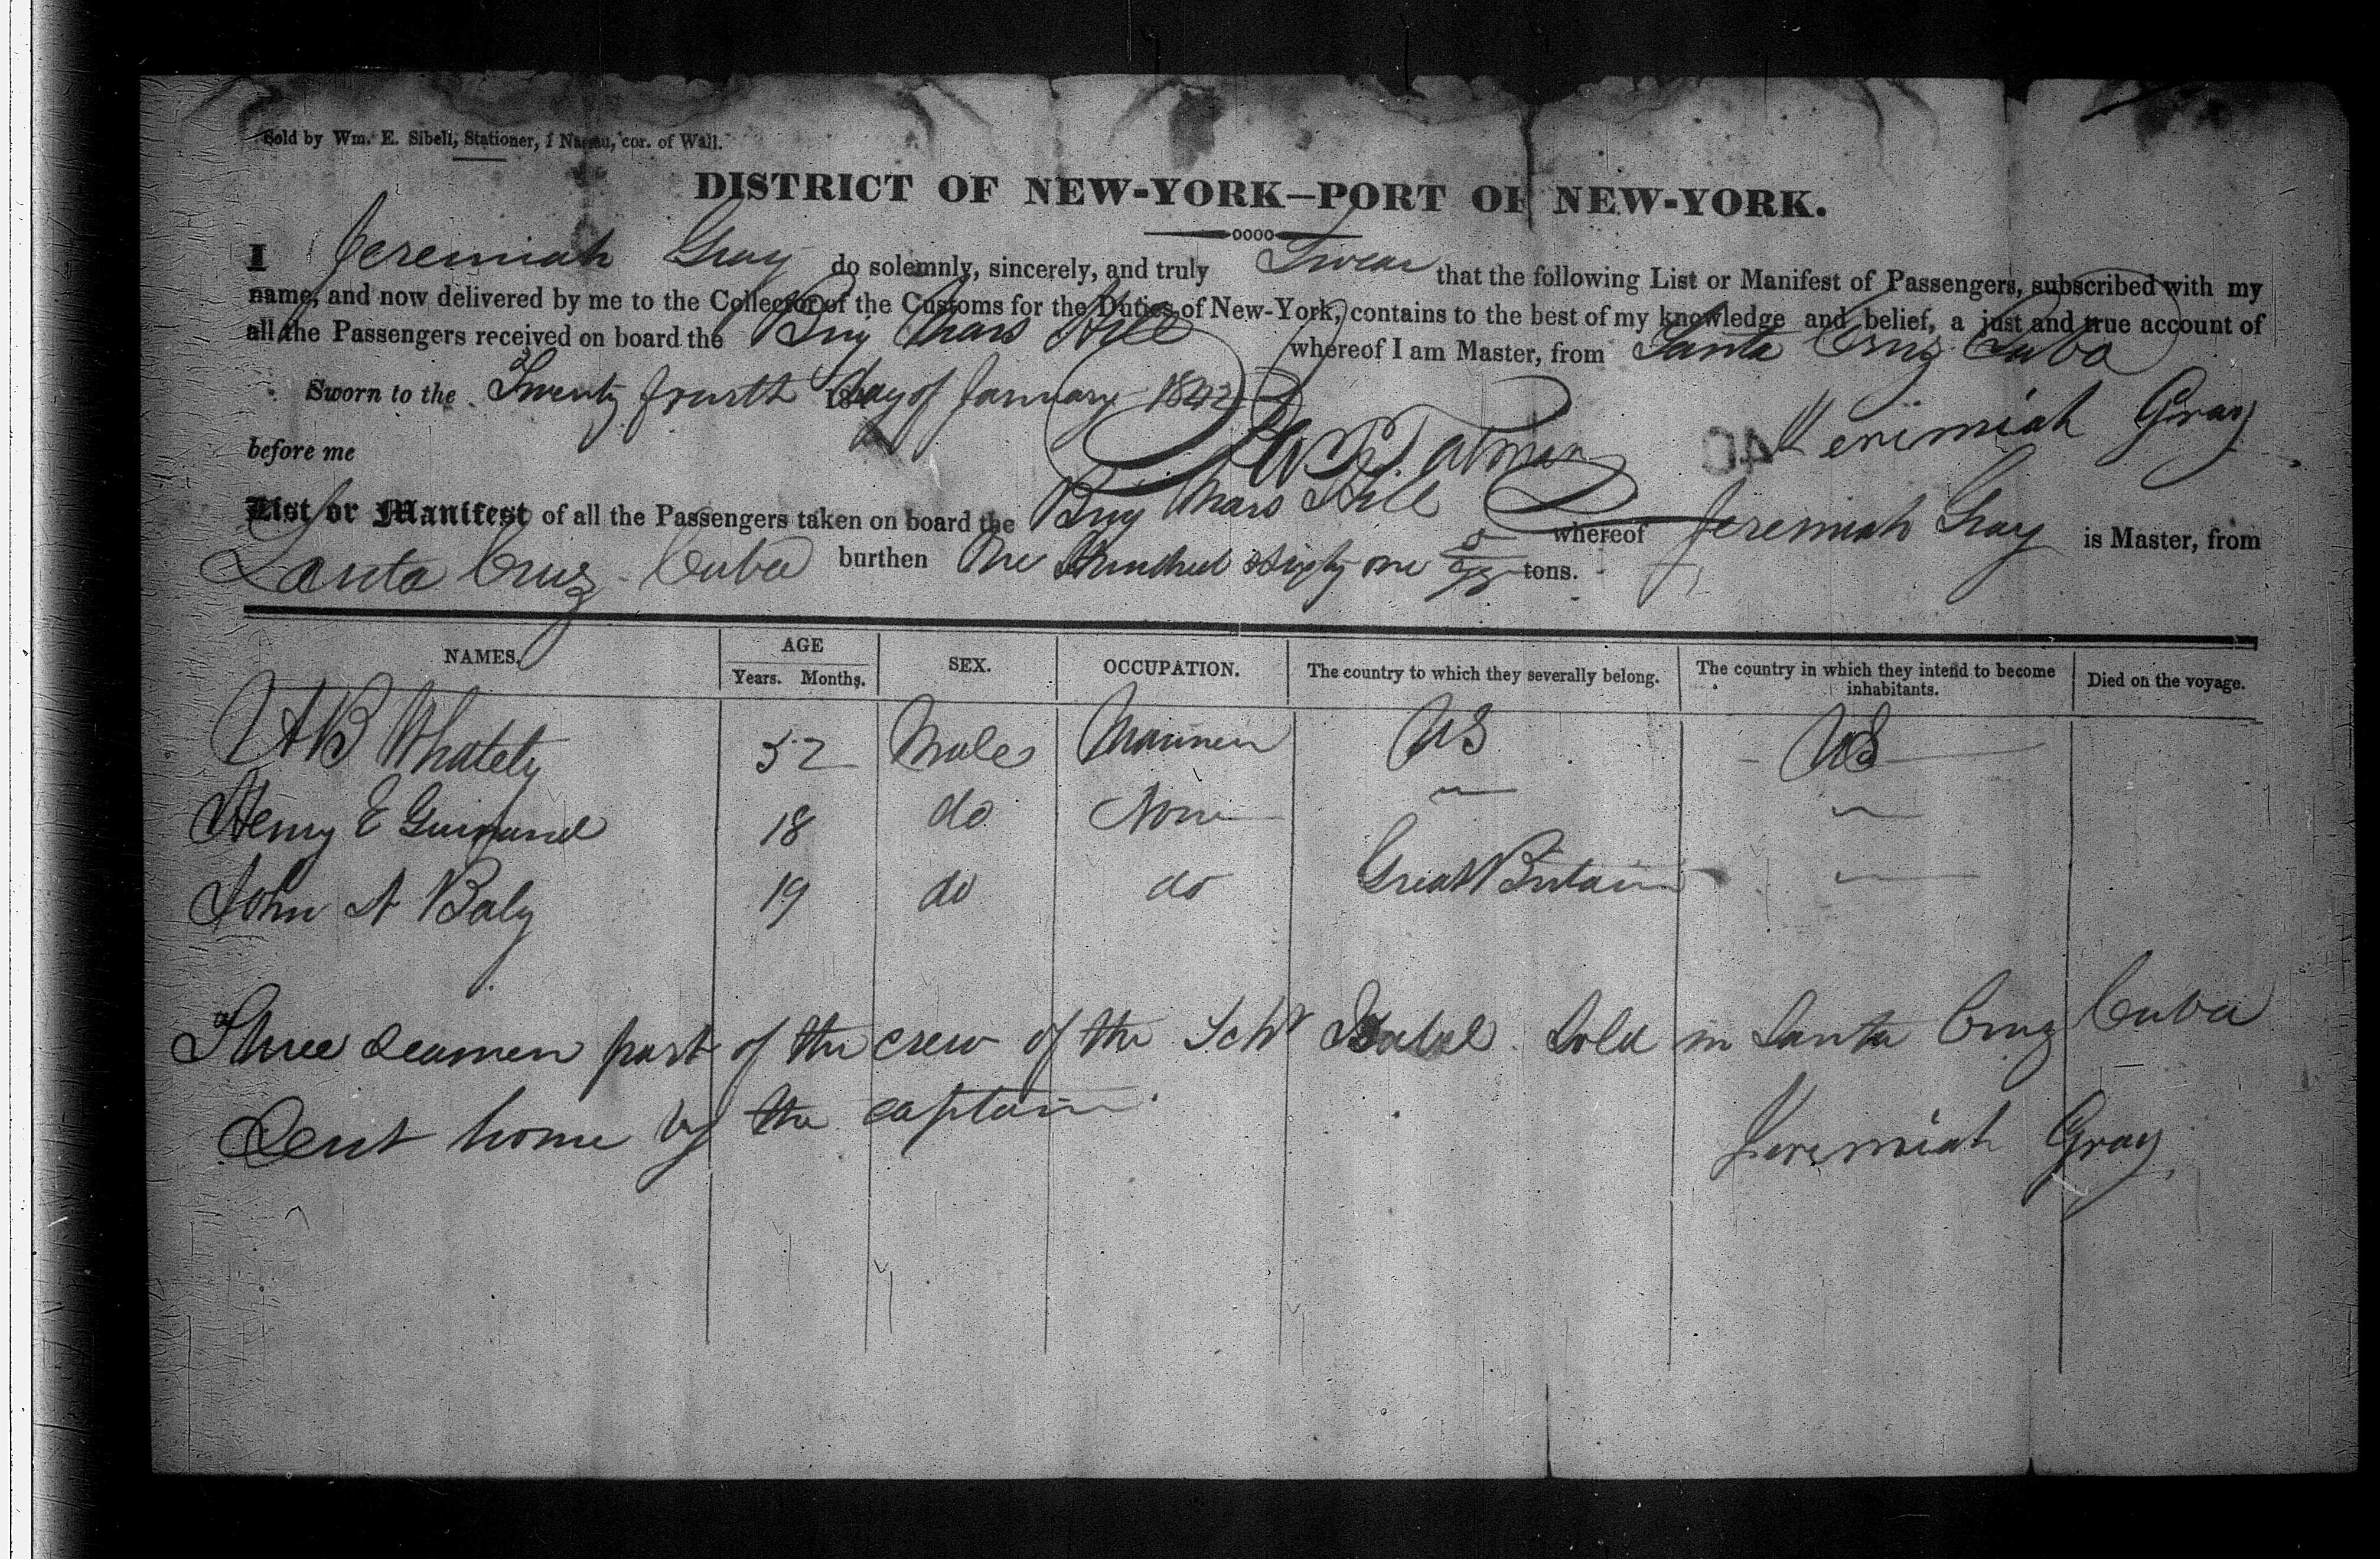 Sold by Wm. E. Sibell, Stationer, 1 Nassau, cor. of Wall.
DISTRICT OF NEW-YORK—PORT OF NEW-YORK.
I Jeremiah Gray do solemnly, sincerely, and truly Swear that the following List or Manifest of Passengers, subscribed with my
name, and now delivered by me to the Collector of the Customs for the Duties of New-York, contains to the best of my knowledge and belief, a just and true account of
all the Passengers received on board the Brig Mars Hill whereof I am Master, from Santa Cruz Cuba
Sworn to the Twenty fourth day of January 1842 Jerimiah Gray
before me
List or Manifest of all the Passengers taken on board the Brig Mars Hill whereof Jeremiah Gray is Master, from
Santa Cruz Cuba burthen One Hundred & Sixty one tons.
NAMES. AGE Years. Months. SEX. OCCUPATION. The country to which they severally belong. The country in which they intend to become inhabitants. Died on the voyage.
Whately 52 Males Mariner US US
Henry E 18 do None
John A Baly 19 do do Great Britain
Three Seamen part of the crew of the Schr Isabel Sold in Santa Cruz Cuba
Sent home by the captain.
Jeremiah Gray